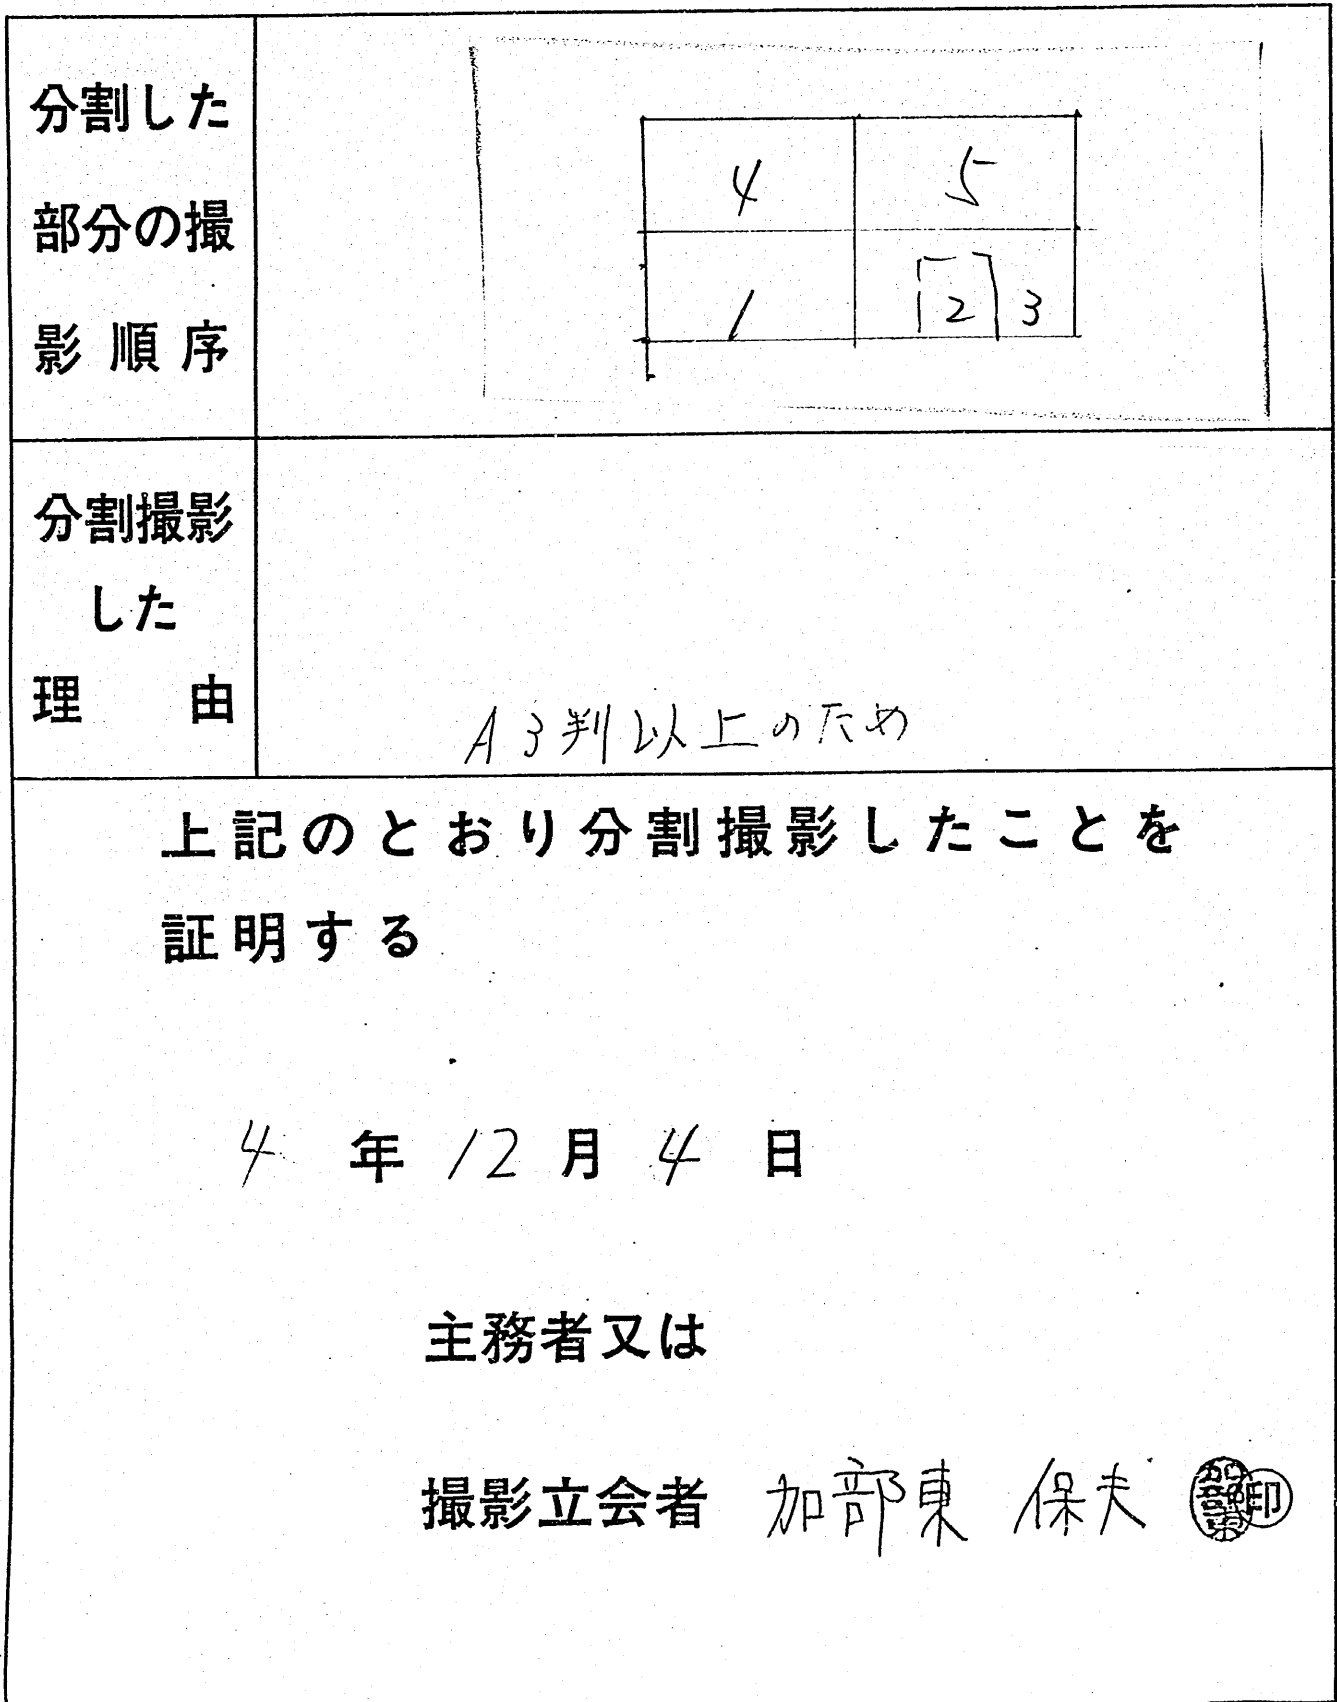 分割した
部分の撮
影順序
4 5
1 2 3
分割撮影
した
理由
A3判以上のため
上記のとおり分割撮影したことを
証明する
4年12月4日
主務者又は
撮影立会者 加部東 保夫 加部東 印